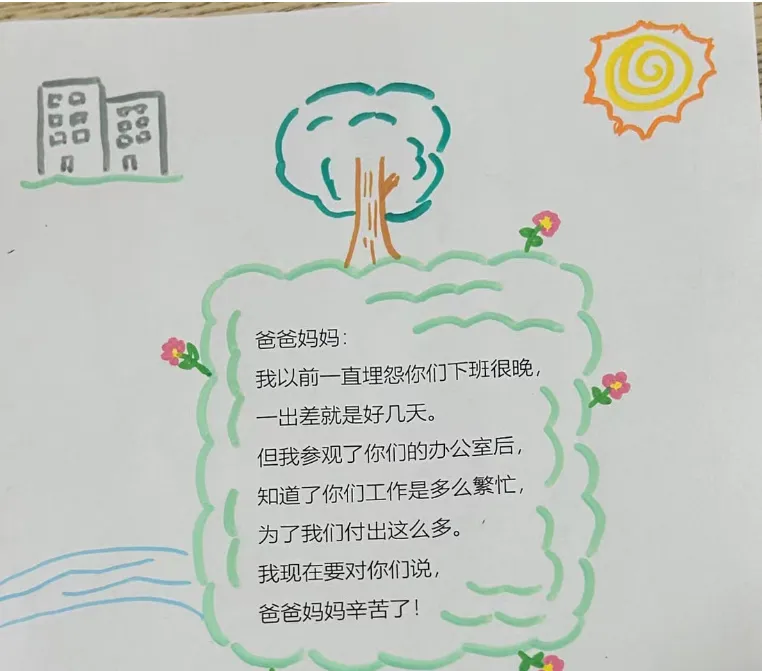 爸爸妈妈：
我以前一直埋怨你们下班很晚，
一出差就是好几天。
但我参观了你们的办公室后，
知道了你们工作是多么繁忙，
为了我们付出这么多。
我现在要对你们说，
爸爸妈妈辛苦了！